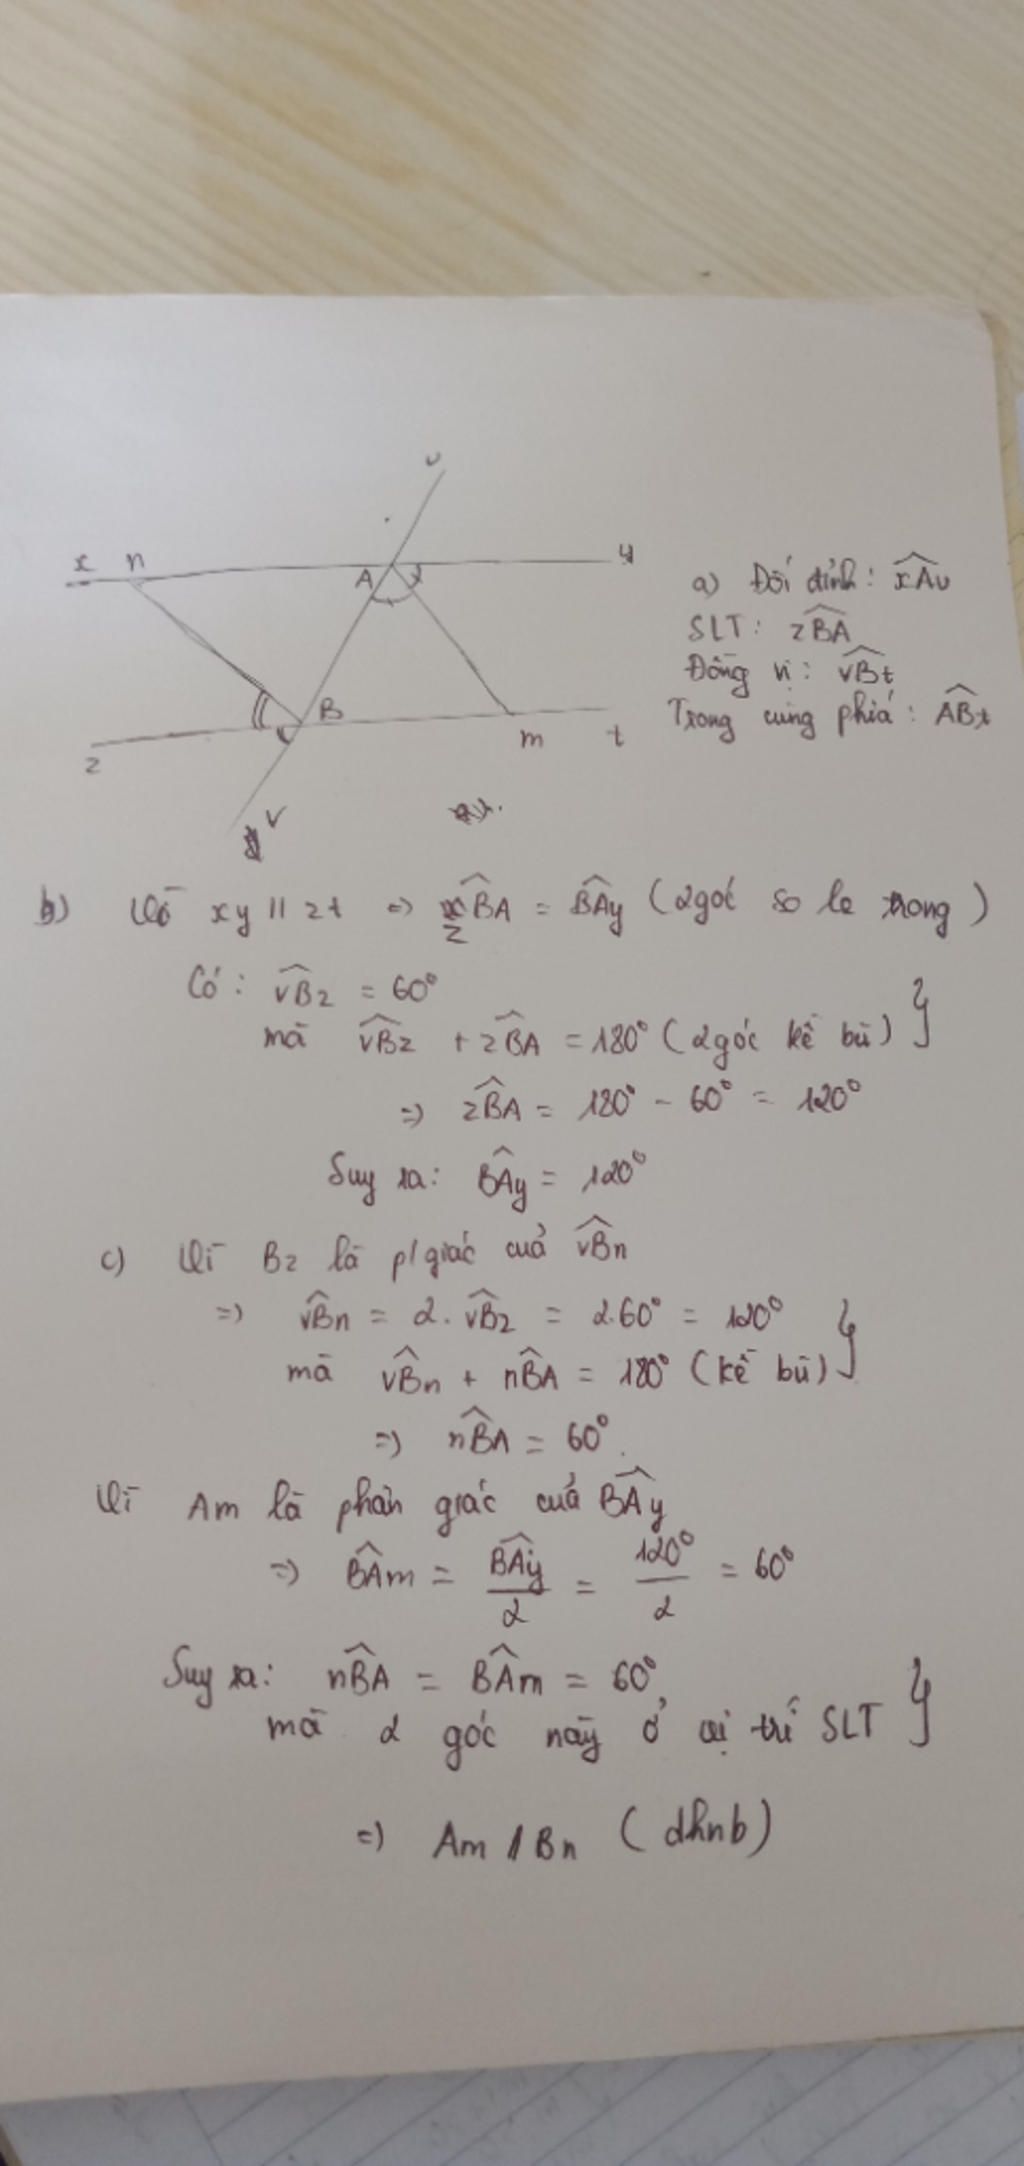 u
x n
y
A
B
z
m
t
v
a) Đối đỉnh: xAu
SLT: zBA
Đồng vị: vBt
Trong cùng phía: ABt
b) Vì xy // zt => zBA = BAy (2 góc so le trong)
Có: vBz = 60°
mà vBz + zBA = 180° (2 góc kề bù) }
=> zBA = 180° - 60° = 120°
Suy ra: BAy = 120°
c) Vì Bz là p/giác của vBn
=> vBn = 2. vBz = 2.60° = 120°
mà vBn + nBA = 180° (kề bù) }
=> nBA = 60°.
Vì Am là phân giác của BAy
=> BAm = BAy/2 = 120°/2 = 60°
Suy ra: nBA = BAm = 60°
mà 2 góc này ở vị trí SLT }
=> Am // Bn (dhnb)